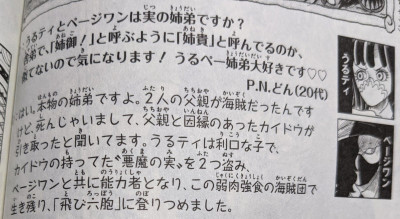 うるティとページワンは実の姉弟ですか？
舎弟で、「姉御！」と呼ぶように「姉貴」と呼んでるのか、
似てないので気になります！うるペー姉弟大好きです♡♡
P.N.どん（20代）
はい。本物の姉弟ですよ。2人の父親が海賊だったんです
けど、死んじゃいまして、父親と因縁のあったカイドウが
引き取ったと聞いてます。うるティは利口な子で、
カイドウの持ってた〝悪魔の実〟を2つ盗み、
ページワンと共に能力者となり、この弱肉強食の海賊団で
生き残り、「飛び六胞」に登りつめました。
うるティ
ページワン